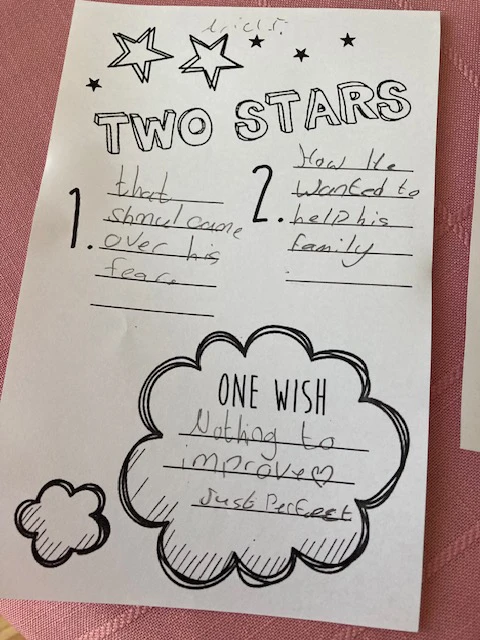 TWO STARS
1.
that
Shmul came
over his
fear.
2.
How He
wanted to
help his
family
ONE WISH
Nothing to
improve♡
Just Perfect